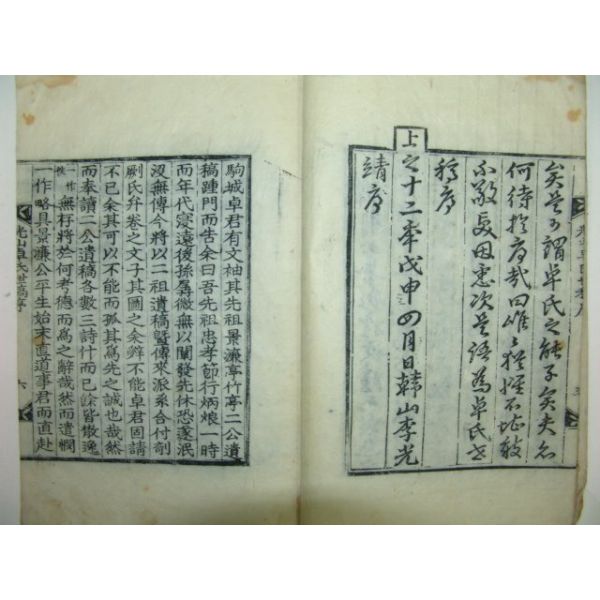 矣 謂卓氏之能子矣夫
何待於序哉曰唯唯 敢
次 語為卓氏世
稿序
上之十二年戊申四月日韓山李光
靖序
駒城卓君有文袖其先祖景濂亭竹亭二公遺
稿踵門而告余曰吾先祖忠孝節行炳烺一時
而年代寖遠後孫孱微無以闡發先休恐遂泯
沒無傳今將以二祖遺稿曁傳來派系合付剞
劂氏弁卷之文子其圖之余辭不能卓君固請
不已余其可以不能而孤其爲先之誠也哉然
而奉讀二公遺稿各數三詩什而已餘皆散逸
無存將於何考德而爲之辭哉然而遺
一作略具景濂公平生始末直道事君而直赴
光山卓氏世稿序
六